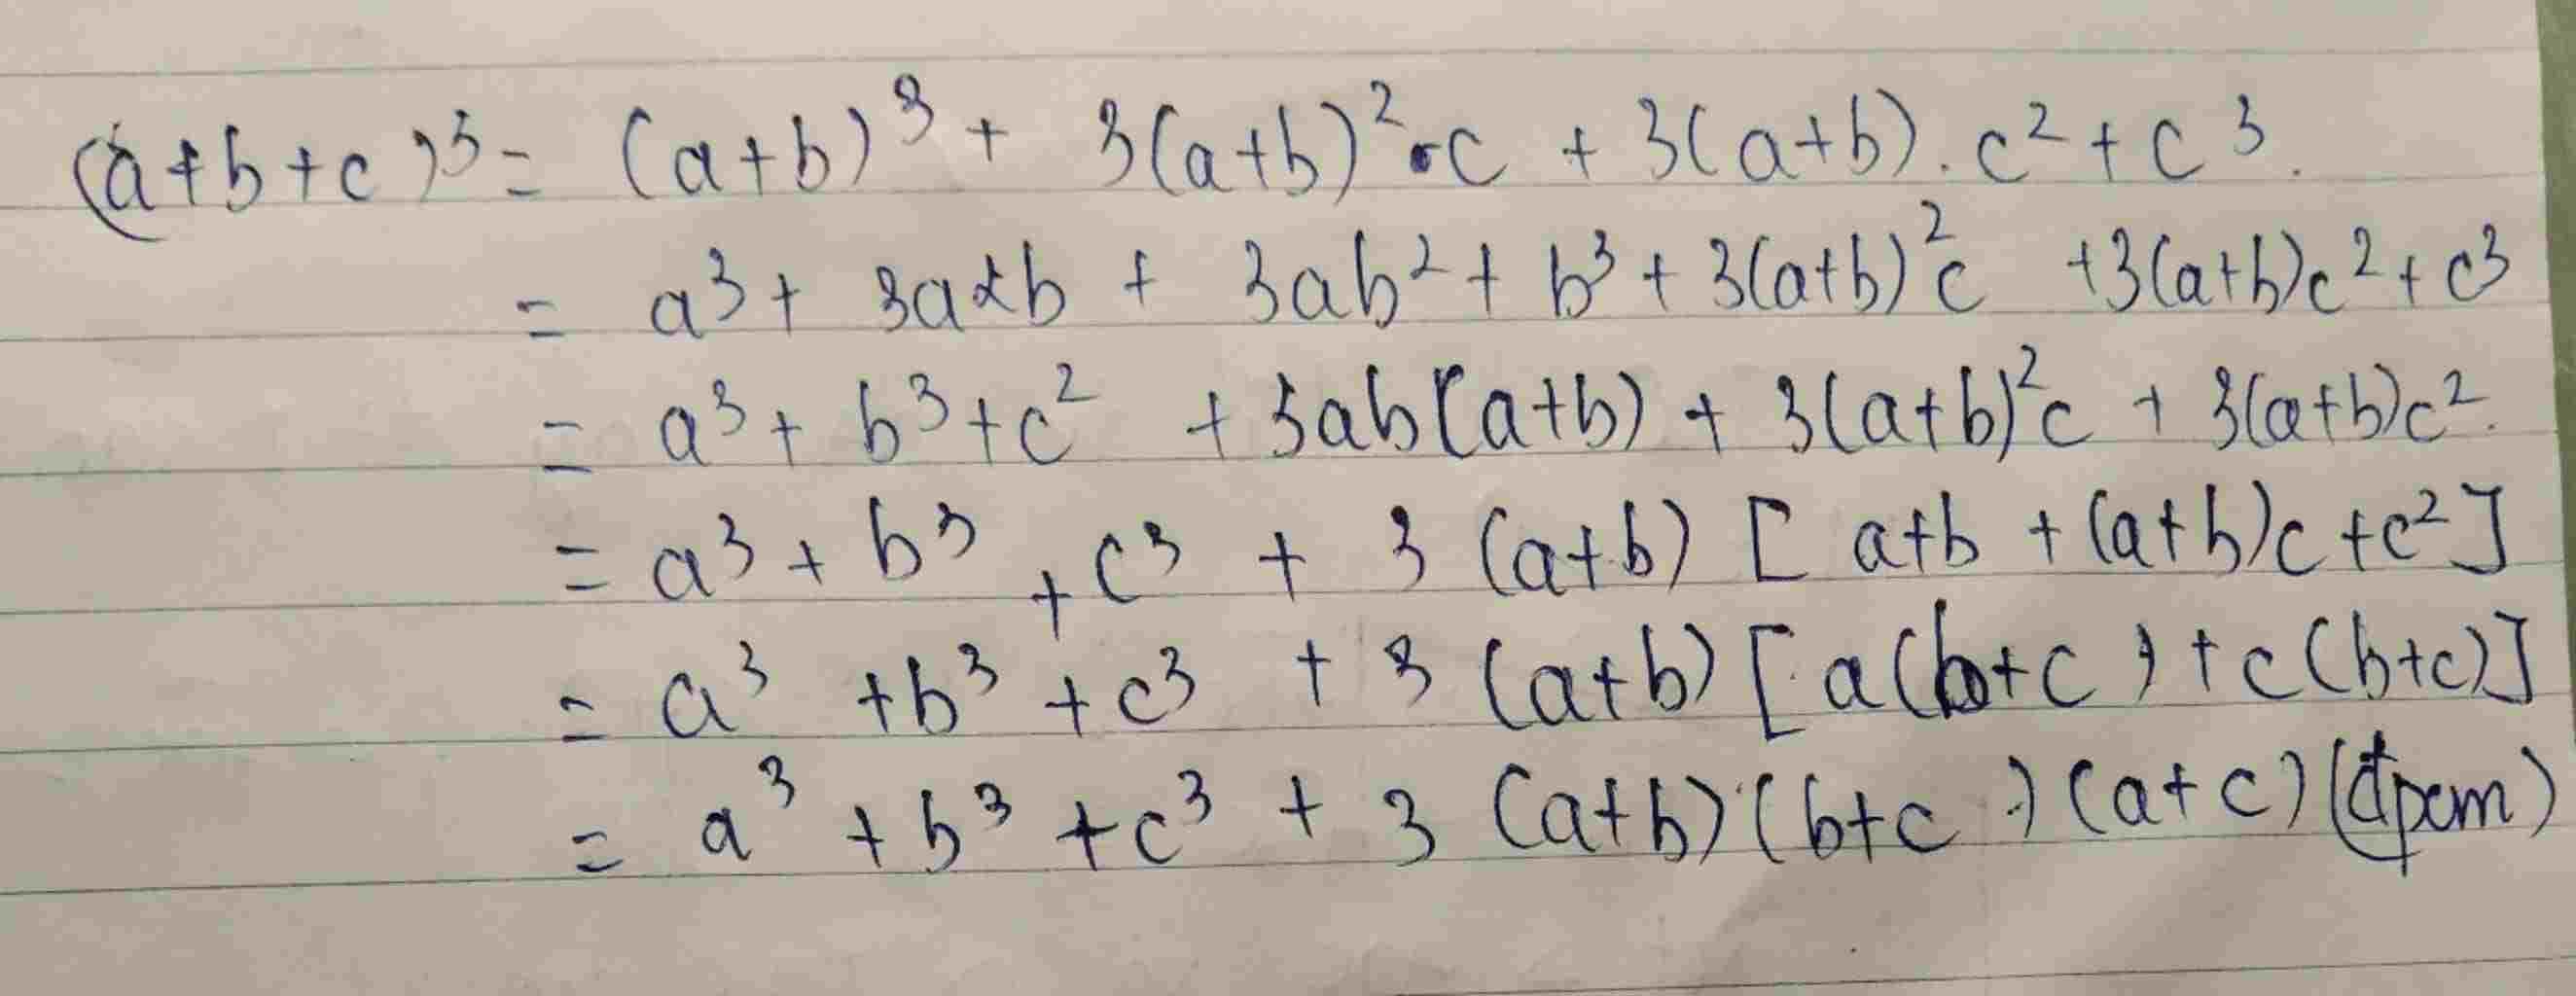 (a+b+c)³ = (a+b)³ + 3(a+b)²·c + 3(a+b).c² + c³.
= a³ + 3a²b + 3ab² + b³ + 3(a+b)²c + 3(a+b)c² + c³
= a³ + b³ + c² + 3ab(a+b) + 3(a+b)²c + 3(a+b)c².
= a³ + b³ + c³ + 3 (a+b) [ a+b + (a+b)c + c²]
= a³ + b³ + c³ + 3 (a+b) [a(b+c) + c(b+c)]
= a³ + b³ + c³ + 3 (a+b)(b+c)(a+c) (đpcm)